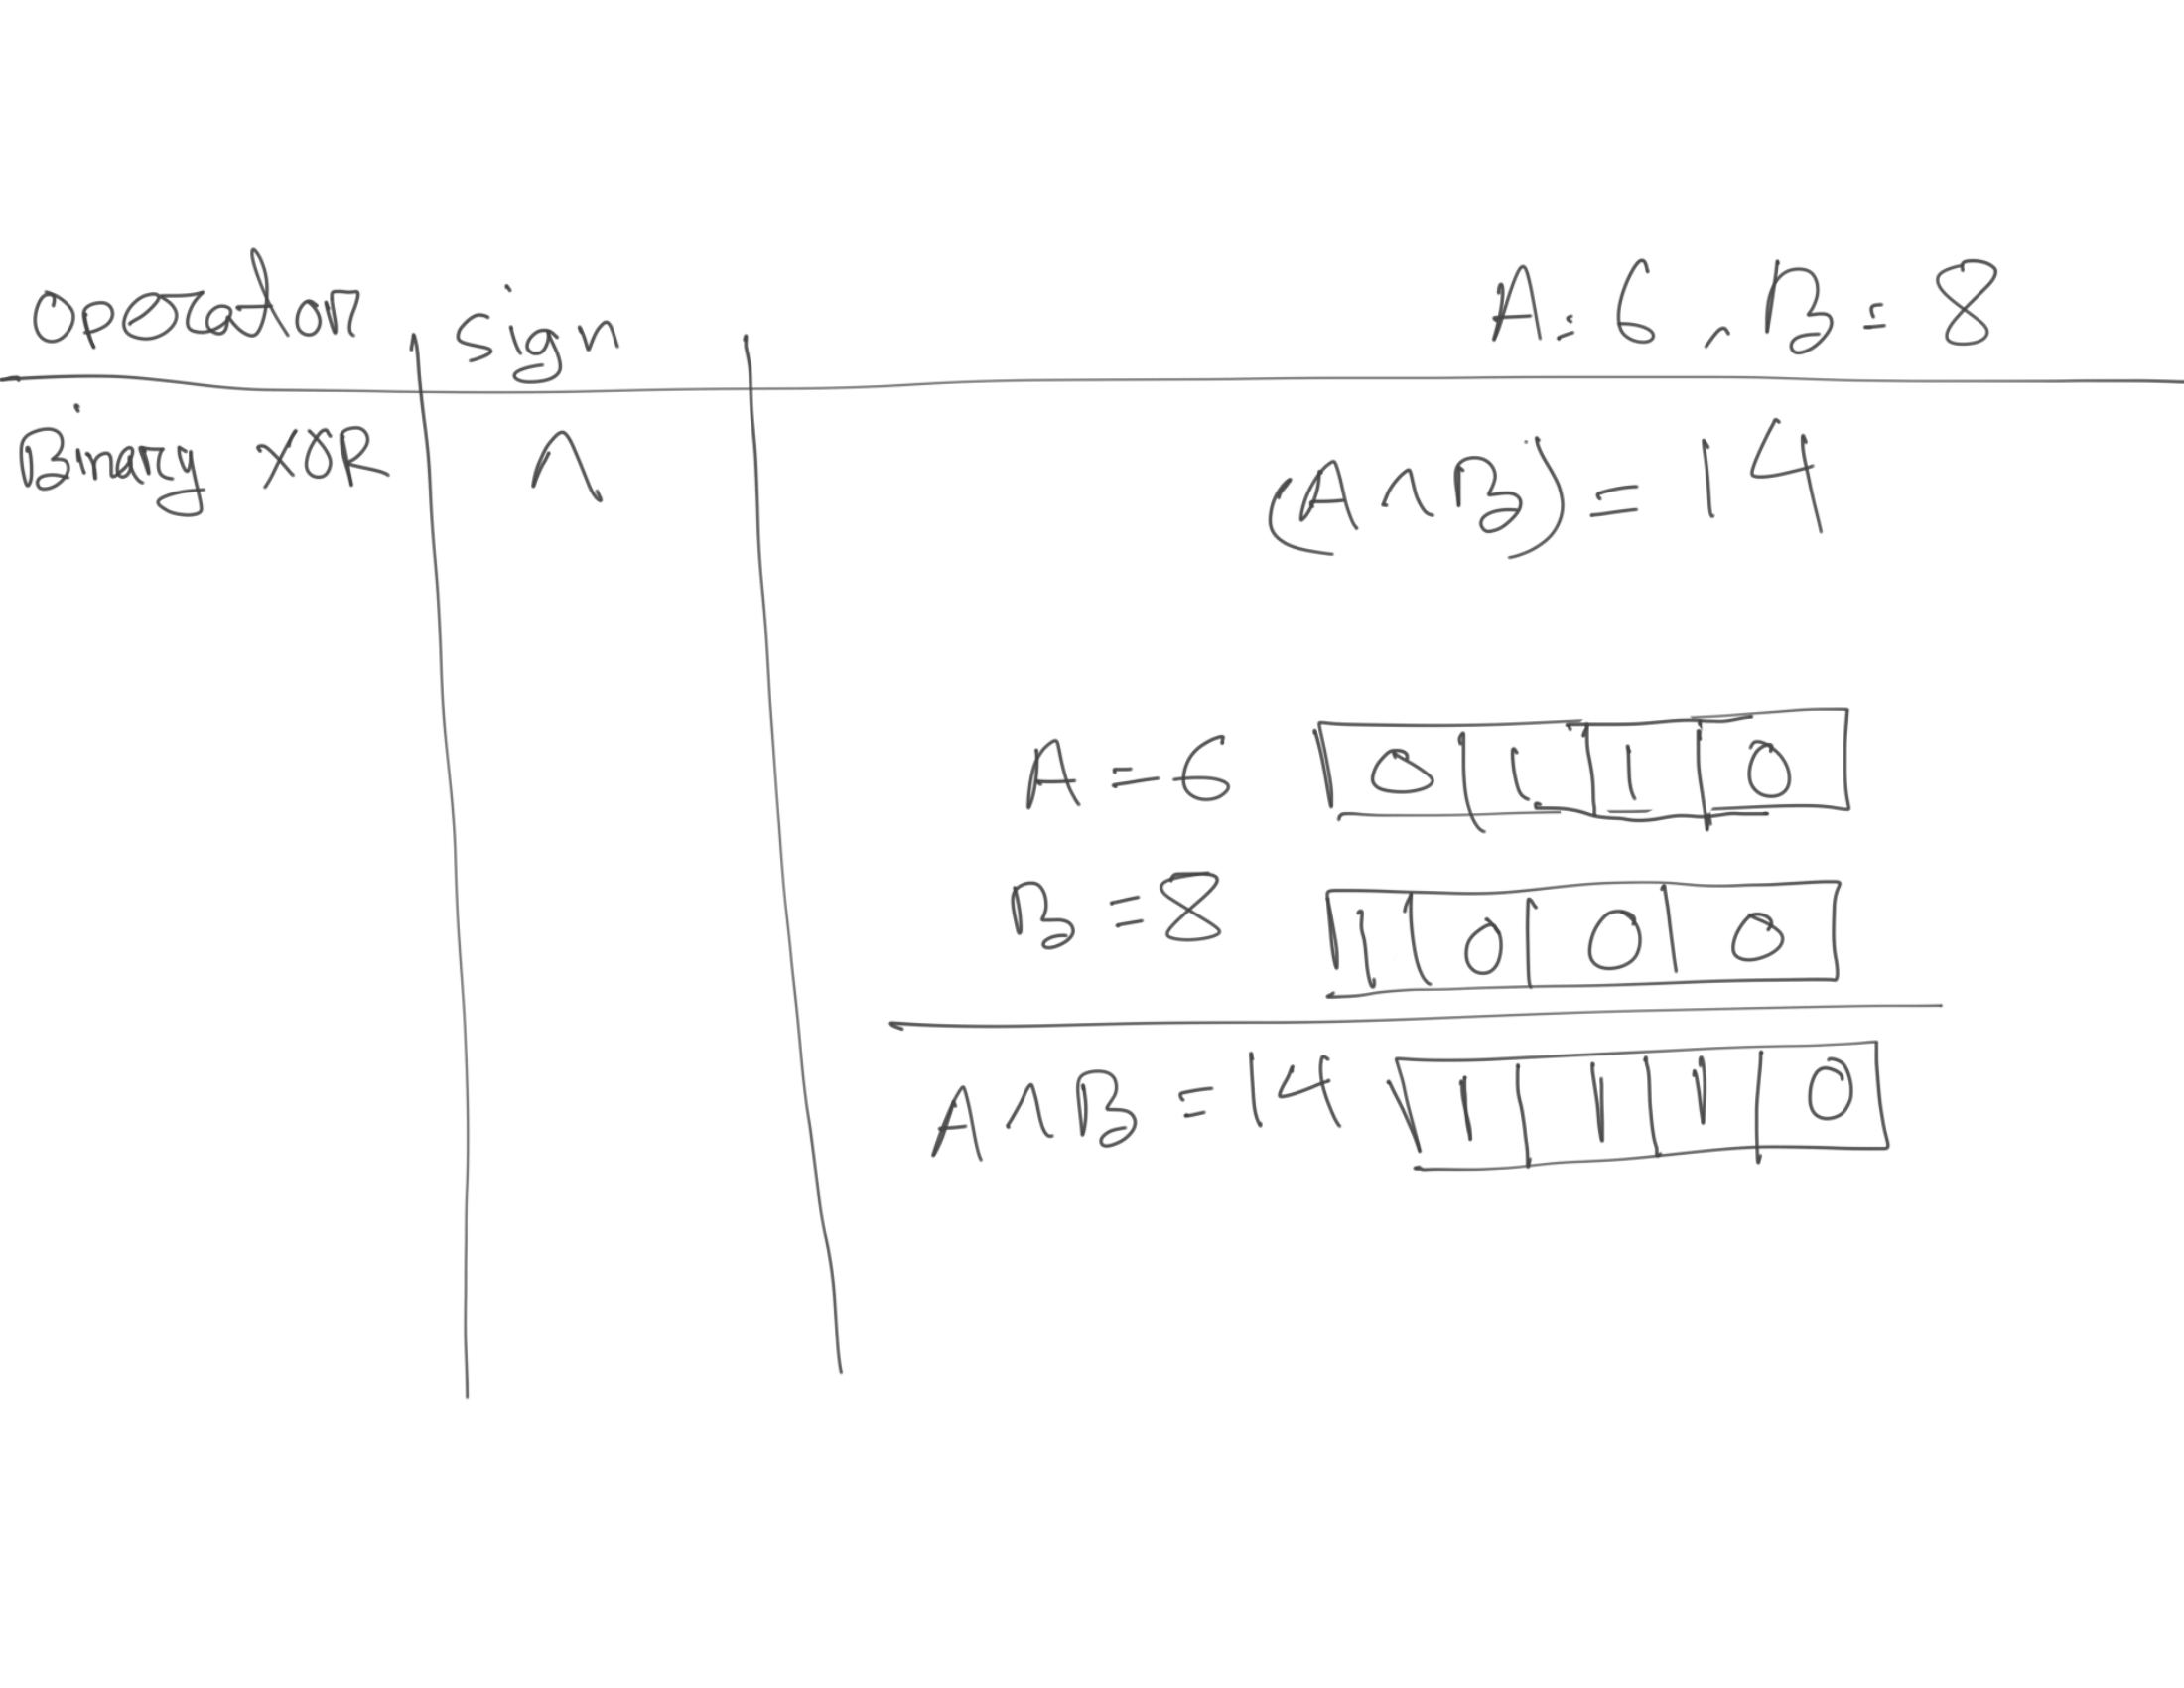 operator sign A = 6, B = 8
Binary XOR ^ (A ^ B) = 14
A = 6 0 1 1 0
B = 8 1 0 0 0
A ^ B = 14 1 1 1 0